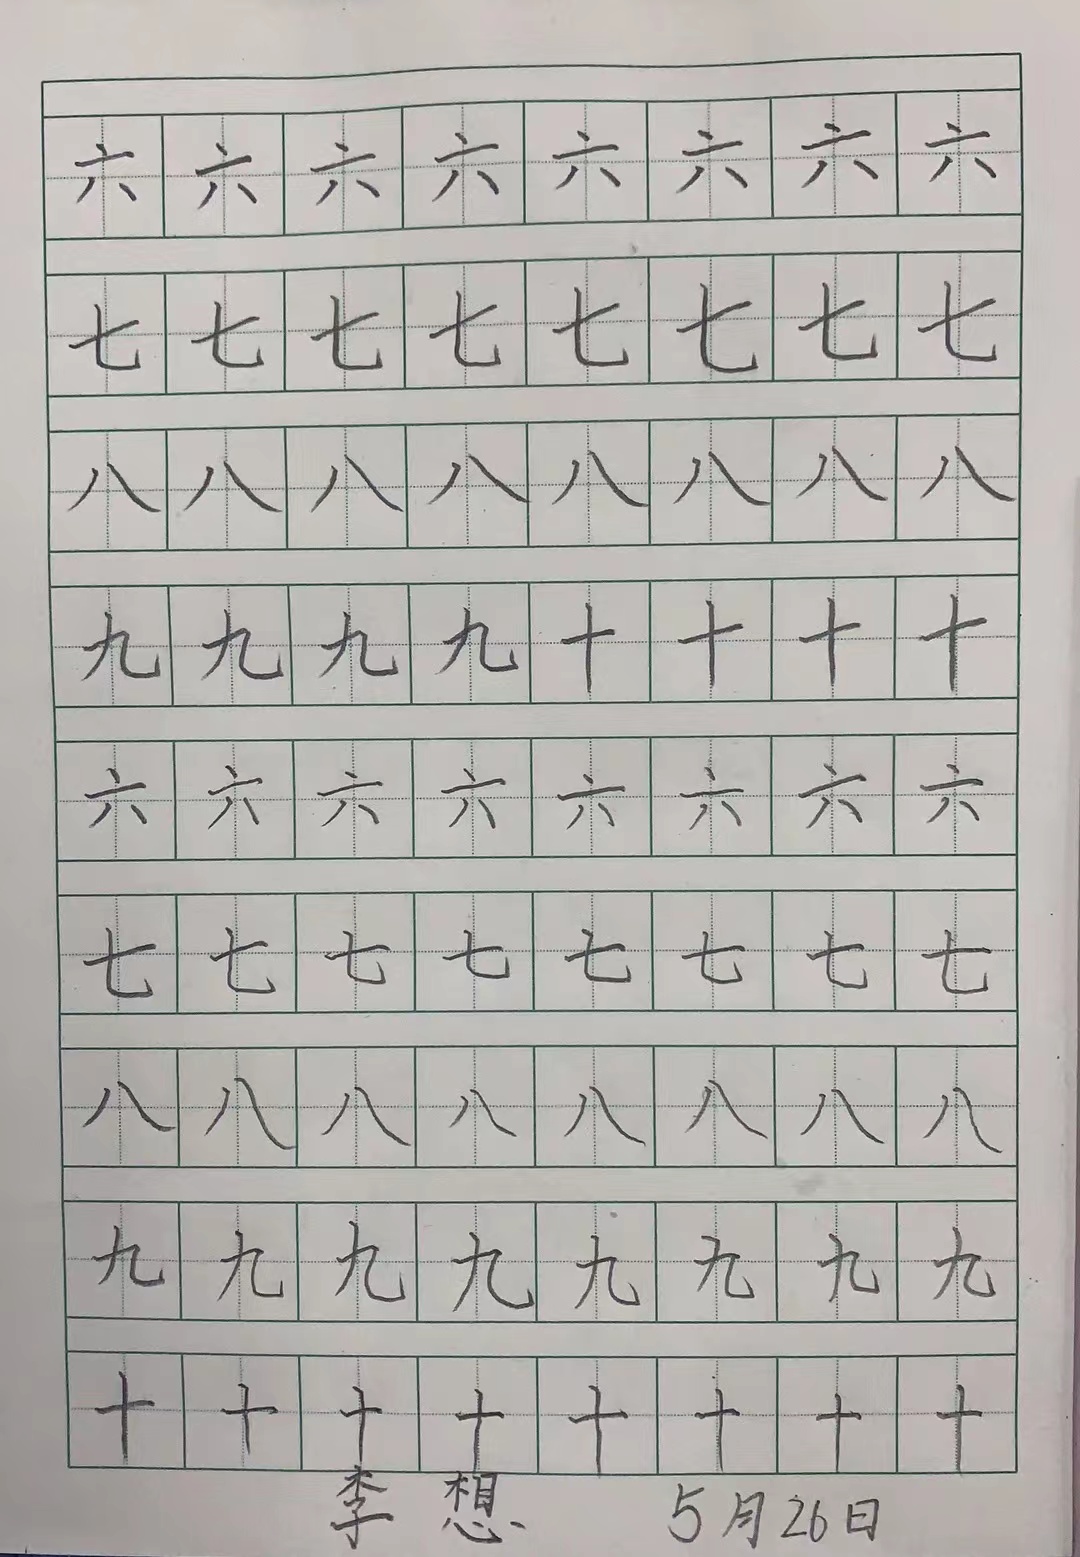 六六六六六六六六
七七七七七七七七
八八八八八八八八
九九九九十十十十
六六六六六六六六
七七七七七七七七
八八八八八八八八
九九九九九九九九
十十十十十十十十
李想 5月26日